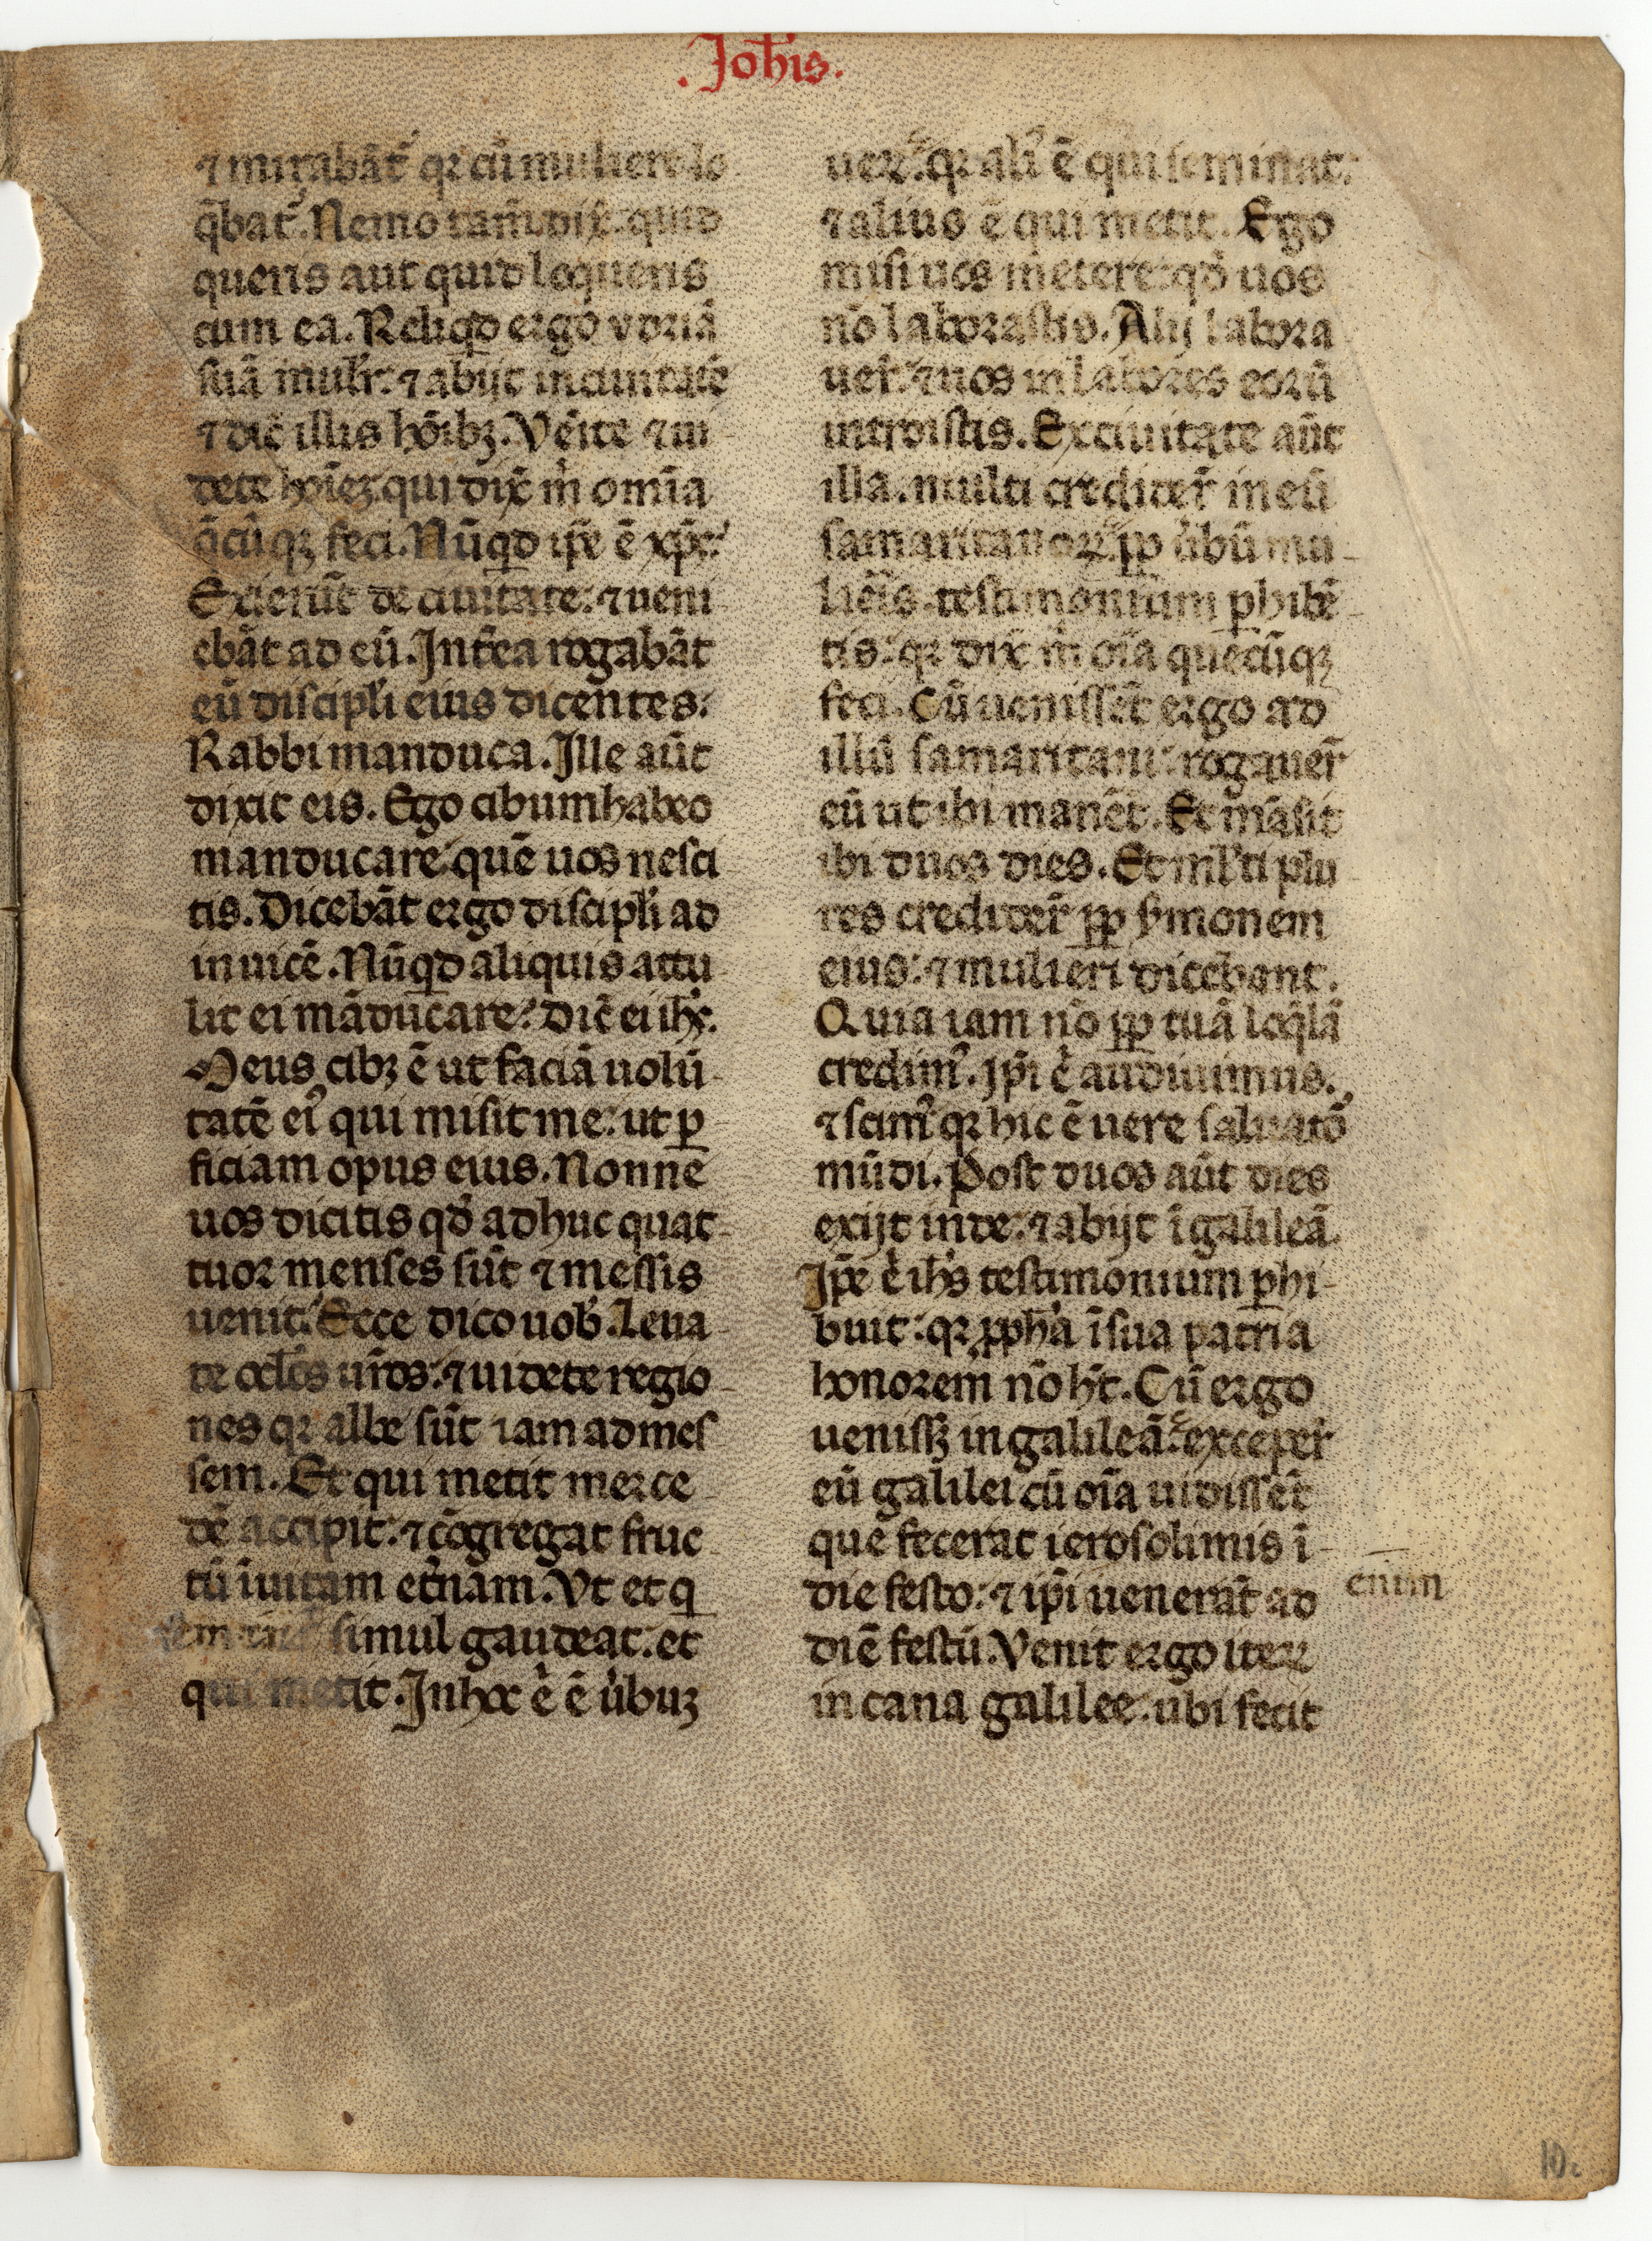 .Joh̄is.
⁊ mirabāt᷑ qꝛ cū muliere lo
q̄bat᷑. Nemo tam̄ dix̄: quid
queris aut quid loqueris
cum ea. Reliqͥd ergo ydriā
suā mulr̄: ⁊ abijt in ciuitatē
⁊ dic̄ illis hōībꝫ. Venite ⁊ ui-
dete hoīeꝫ qui dix̄ m̄ omīa
q̄cūqꝫ feci. Nūqͥd ip̄e ē xp̄c:
Exierūt de ciuitate: ⁊ ueni
ebāt ad eū. Int̄ea rogabāt
eū discipl̄i eius dicentes:
Rabbi manduca. Ille aūt
dixit eis. Ego cibum habeo
manducare quē uos nesci
tis. Dicebāt ergo discipl̄i ad
inuicē. Nūqͥd aliquis attu
lit ei māducare: Dic̄ ei ih̄c.
Meus cibꝫ ē ut faciā uolū-
tatē eiꝰ qui misit me: ut ꝑ
ficiam opus eius. Nonne
uos dicitis qď adhuc quat-
tuor menses sūt ⁊ messis
uenit: Ecce dico uob̄. Leua
te oc̄los ur̄os: ⁊ uidete regio-
nes qꝛ albe sūt iam ad mes
sem. Et qui metit merce-
dē accipit: ⁊ cōgregat fruc-
tū ī uitam et̄nam. Vt et q̇
simul gaudeat: et
qui metit. In hoc ē ē ūbuꝫ
ueꝝ: qꝛ aliꝰ ē qui seminat:
⁊ alius ē qui metit. Ego
misi uos metere: qď uos
nō laborastis. Alij labora
uer̄: ⁊ uos in labores eorū
introistis. Ex ciuitate aūt
illa. multi crediter̄ in eū
samaritanoꝝ: ꝓp ūbū mu-
lieris. testimonium ꝑhibē-
tis: qꝛ dix̄ m̄ oīa quecūqꝫ
feci. Cū uenissēt ergo ad
illū samaritani: rogauer̄
eū ut ibi manēt. Et māsit
ibi duos dies. Et ml̄ti plu-
res crediter̄ ꝓp s̄monem
eius: ⁊ mulieri dicebant.
Quia iam nō ꝓp tuā loq̄lā
credimꝰ. Ip̄i ē audiuimus.
⁊ scimꝰ qꝛ hic ē uere saluatō
mūdi. Post duos aūt dies
exijt inde: ⁊ abijt ī galileā.
Ip̄e ē ih̄s testimonium ꝑhi-
buit: qꝛ ꝓph̄a ī sua patria
honorem nō hꝫt. Cū ergo
uenissꝫ in galileā: exceper̄
eū galilei cū oīa uidissēt
que fecerat ierosolimis ī
die festo: ⁊ ip̄i uenerāt ad
enim
diē festū. Venit ergo iteꝝ
in cana galilee: ubi fecit
10.